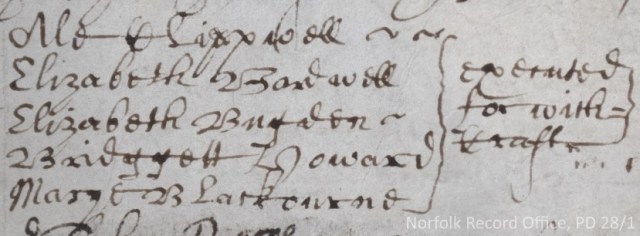 Clippwell
Elizabeth Bardwell
Elizabeth Bugden
Bridggett Howard
Marye Blackbourne
executed
for with=
kraft
Norfolk Record Office, PD 28/1